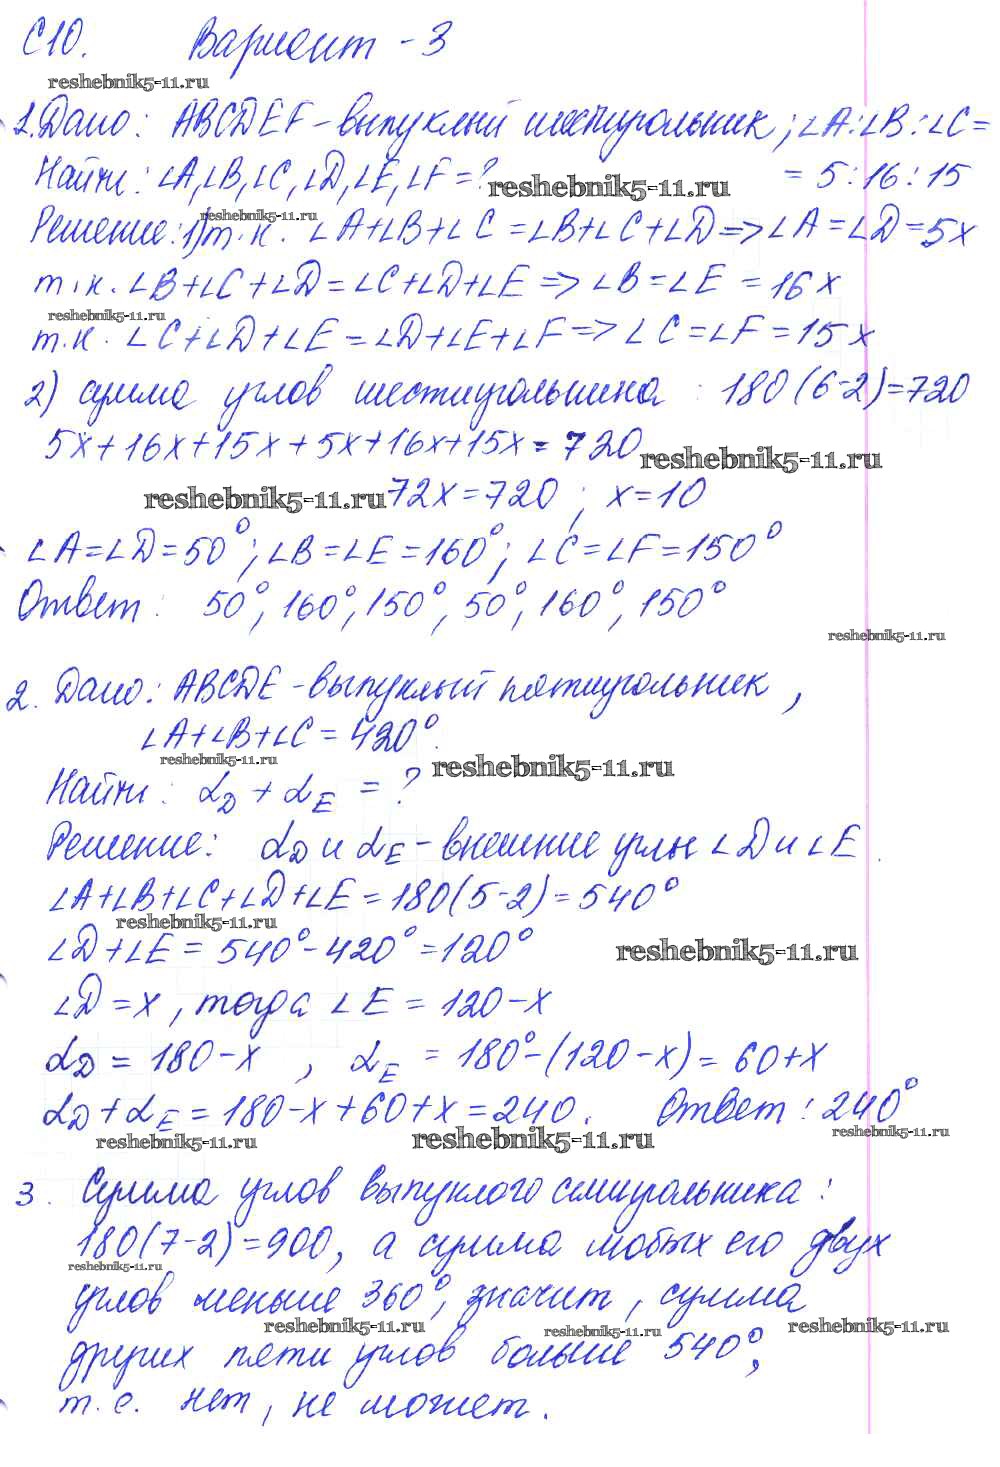 С10. Вариант - 3
reshebnik5-11.ru
1. Дано: ABCDEF - выпуклый шестиугольник; ∠A:∠B:∠C=
Найти: ∠A,∠B,∠C,∠D,∠E,∠F=? reshebnik5-11.ru = 5:16:15
reshebnik5-11.ru
Решение: 1) т.к. ∠A+∠B+∠C=∠B+∠C+∠D=>∠A=∠D=5x
т.к. ∠B+∠C+∠D=∠C+∠D+∠E=>∠B=∠E=16x
reshebnik5-11.ru
т.к. ∠C+∠D+∠E=∠D+∠E+∠F=>∠C=∠F=15x
2) сумма углов шестиугольника: 180(6-2)=720
5x+16x+15x+5x+16x+15x=720 reshebnik5-11.ru
reshebnik5-11.ru 72x=720; x=10
∠A=∠D=50°; ∠B=∠E=160°; ∠C=∠F=150°
Ответ: 50°, 160°, 150°, 50°, 160°, 150°
reshebnik5-11.ru
2. Дано: ABCDE - выпуклый пятиугольник,
∠A+∠B+∠C=420°.
reshebnik5-11.ru reshebnik5-11.ru
Найти: α_D + α_E = ?
Решение: α_D и α_E - внешние углы ∠D и ∠E.
∠A+∠B+∠C+∠D+∠E=180(5-2)=540°
reshebnik5-11.ru
∠D+∠E=540°-420°=120° reshebnik5-11.ru
∠D=x, тогда ∠E=120-x
α_D=180-x, α_E=180°-(120-x)=60+x
α_D+α_E=180-x+60+x=240. Ответ: 240°
reshebnik5-11.ru reshebnik5-11.ru reshebnik5-11.ru
3. Сумма углов выпуклого семиугольника:
180(7-2)=900, а сумма любых его двух
reshebnik5-11.ru
углов меньше 360°, значит, сумма
reshebnik5-11.ru reshebnik5-11.ru reshebnik5-11.ru
других пяти углов больше 540°,
т.е. нет, не может.